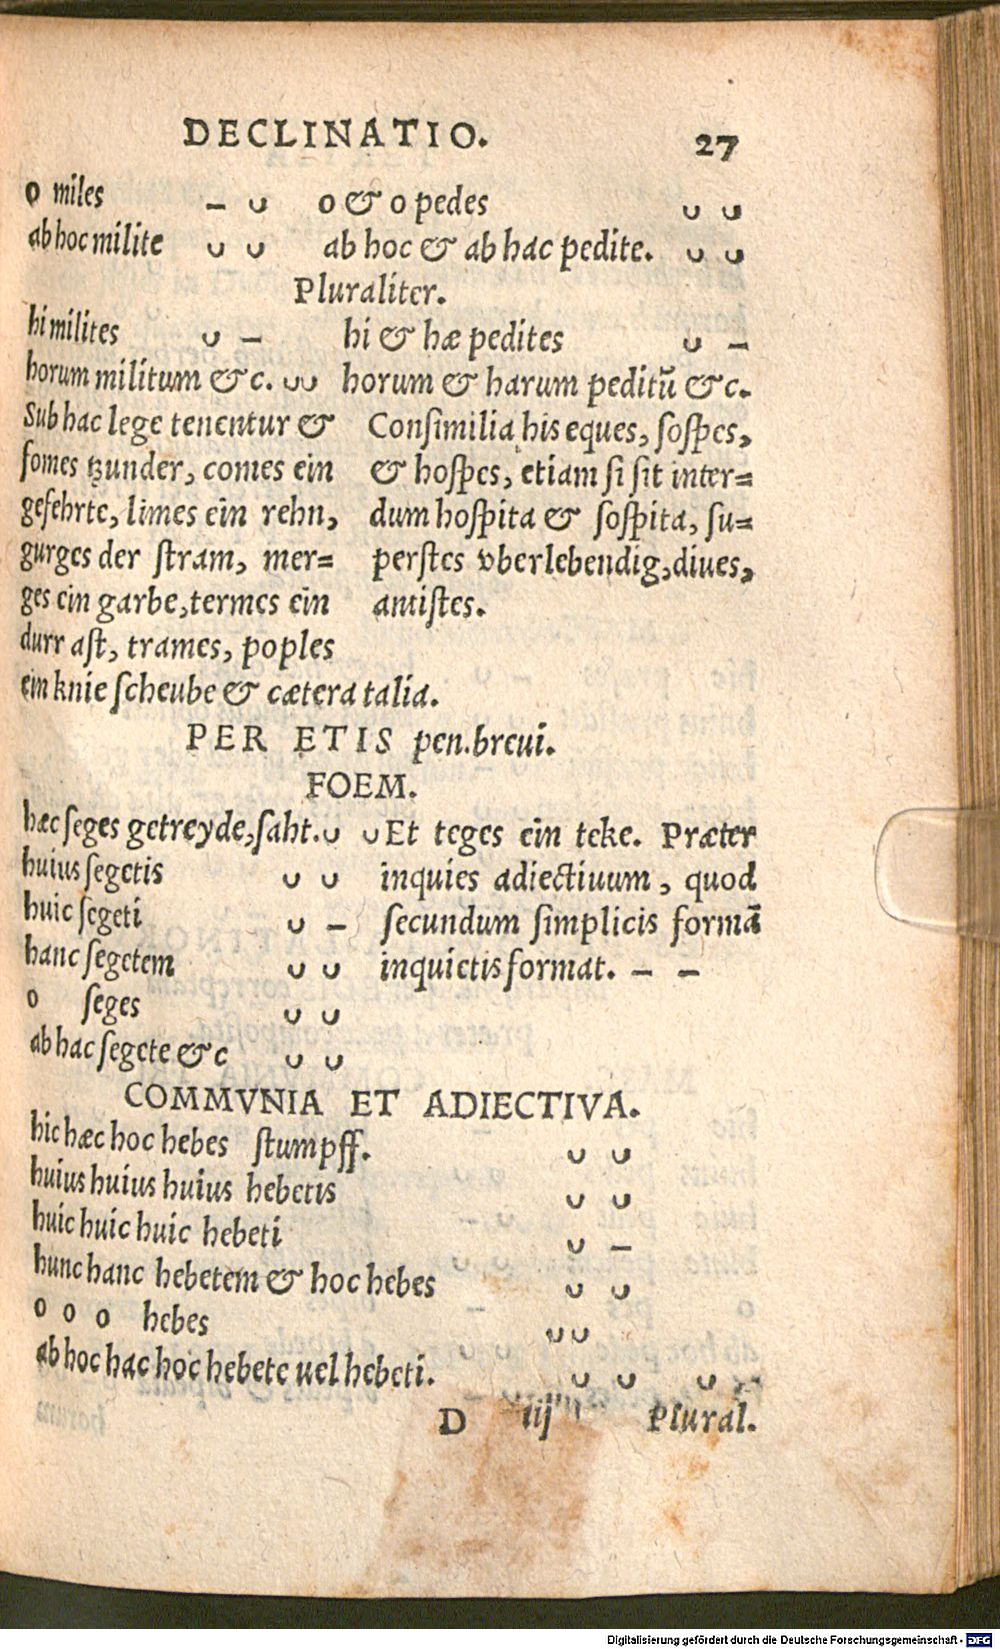 DECLINATIO. 27
o miles – ᴗ o & o pedes ᴗ ᴗ
ab hoc milite ᴗ ᴗ ab hoc & ab hac pedite. ᴗ ᴗ
Pluraliter.
hi milites ᴗ – hi & hæ pedites ᴗ –
horum militum &c. ᴗᴗ horum & harum peditũ &c.
Sub hac lege tenentur &
fomes tzunder, comes ein
gefehrte, limes ein rehn,
gurges der stram, mer=
ges ein garbe, termes ein
durr ast, trames, poples
ein knie scheube & cætera talia.
Consimilia his eques, sospes,
& hospes, etiam si sit inter=
dum hospita & sospita, su=
perstes vberlebendig, diues,
antistes.
PER ETIS pen. breui.
FOEM.
hæc seges getreyde, saht. ᴗ ᴗ
huius segetis ᴗ ᴗ
huic segeti ᴗ –
hanc segetem ᴗ ᴗ
o seges ᴗ ᴗ
ab hac segete &c ᴗ ᴗ
Et teges ein teke. Præter
inquies adiectiuum, quod
secundum simplicis formã
inquietis format. – –
COMMVNIA ET ADIECTIVA.
hic hæc hoc hebes stumpff. ᴗ ᴗ
huius huius huius hebetis ᴗ ᴗ
huic huic huic hebeti ᴗ –
hunc hanc hebetem & hoc hebes ᴗ ᴗ
o o o hebes ᴗᴗ
ab hoc hac hoc hebete uel hebeti. ᴗ ᴗ ᴗ –
D iij Plural.
Digitalisierung gefördert durch die Deutsche Forschungsgemeinschaft - DFG